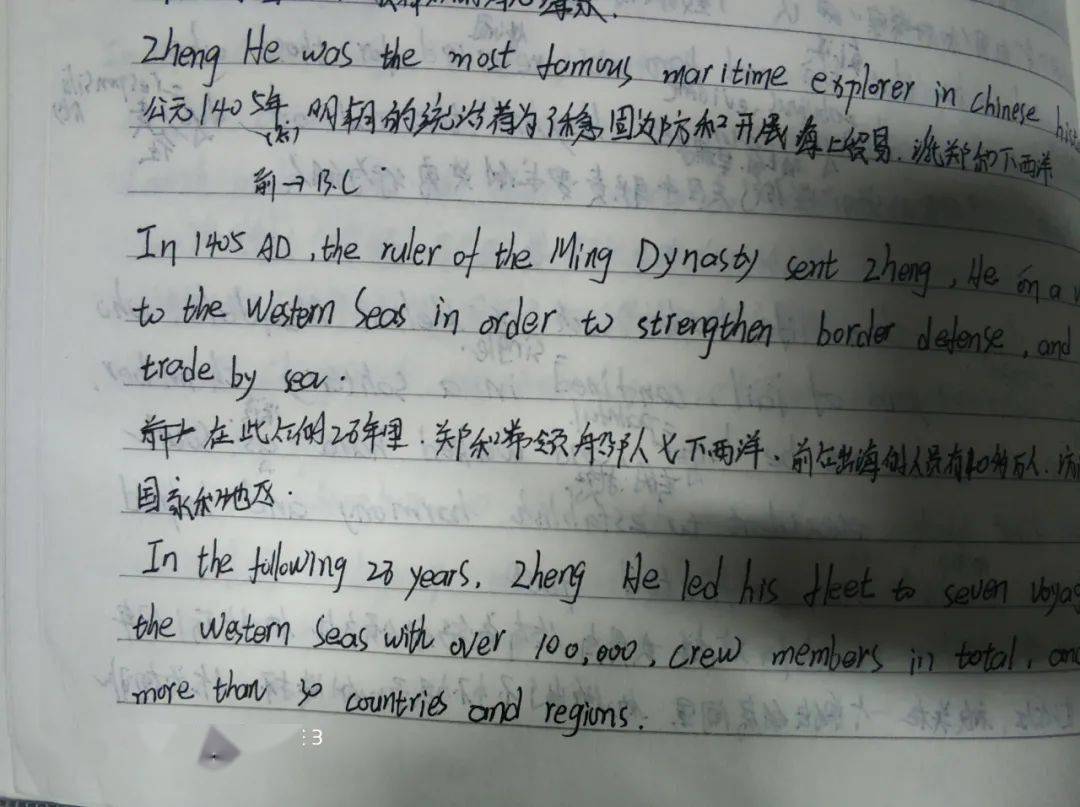 Zheng He was the most famous maritime explorer in Chinese hist
公元1405年 明朝的统治者为了稳固边防和开展海上贸易，派郑和下西洋
前→B.C
In 1405 AD, the ruler of the Ming Dynasty sent Zheng, He on a
to the Western Seas in order to strengthen border defense, and
trade by sea.
在此后的28年里，郑和带领船队七下西洋，前后出海的人员有10多万人，访
国家和地区.
In the following 28 years, Zheng He led his fleet to seven voyag
the Western Seas with over 100,000, crew members in total, and
more than 30 countries and regions.